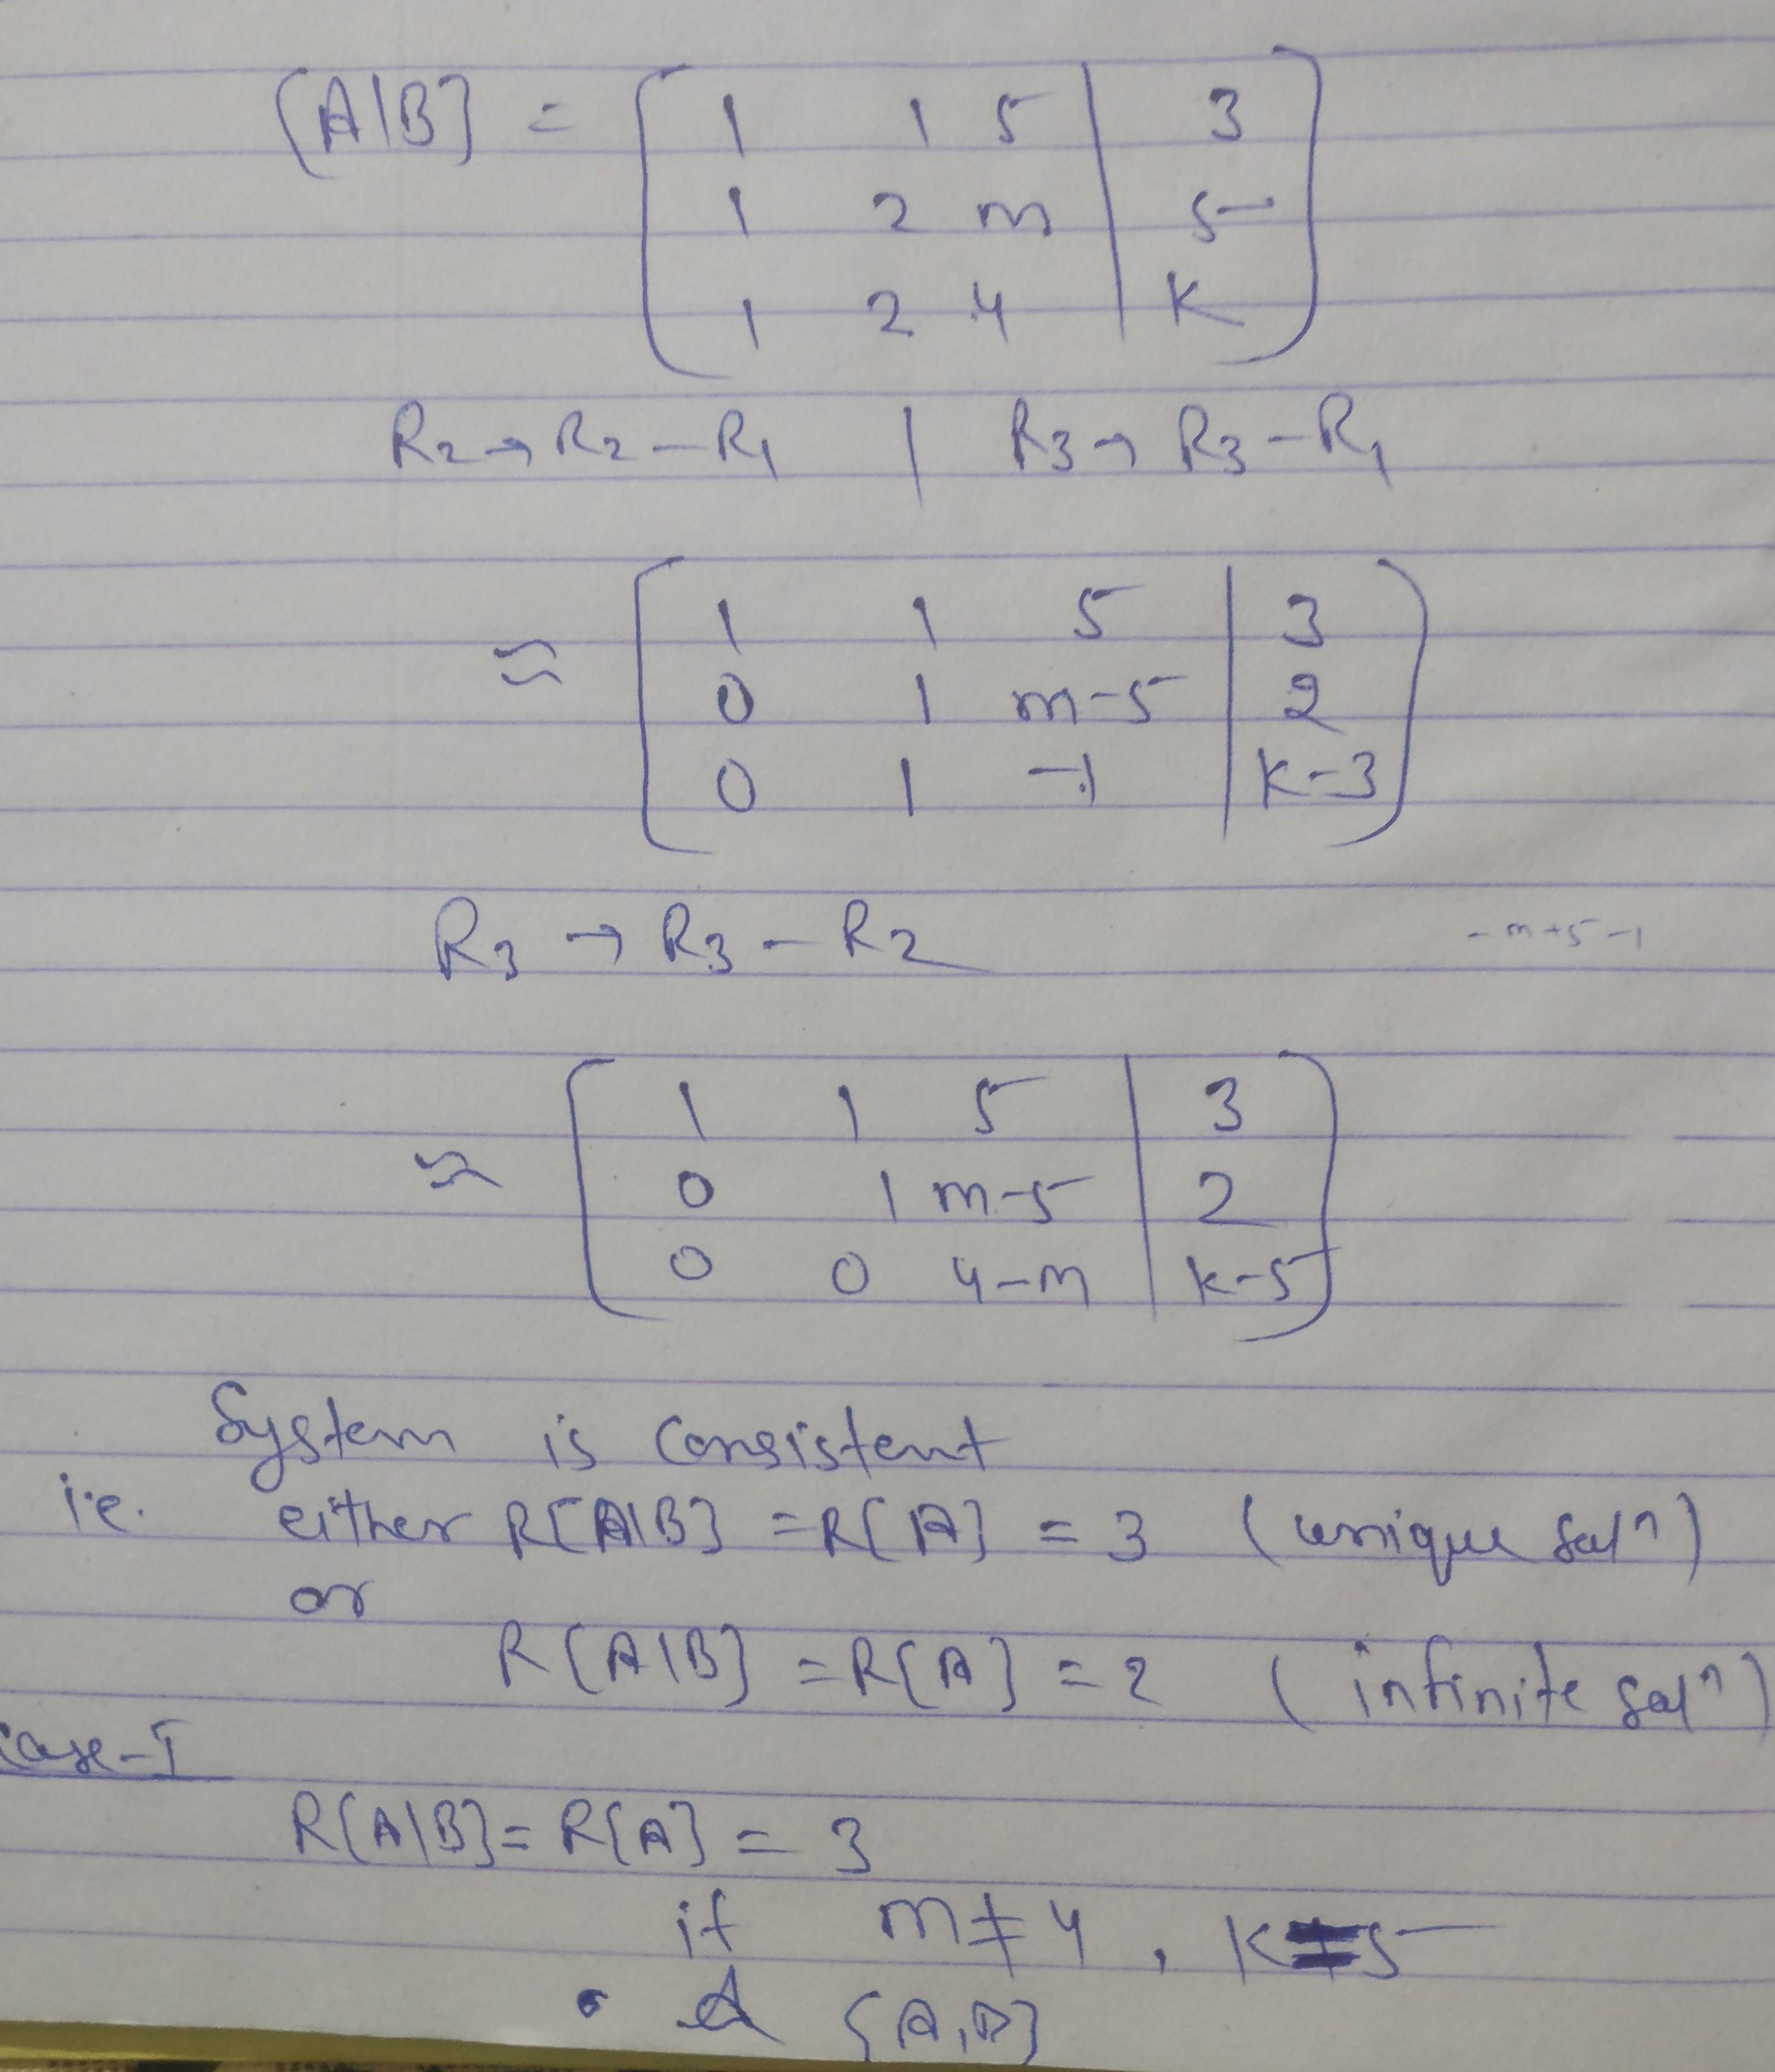 [A|B] = [ 1 1 5 | 3
1 2 m | 5
1 2 4 | K ]
R2 → R2 – R1 | R3 → R3 – R1
≈ [ 1 1 5 | 3
0 1 m-5 | 2
0 1 -1 | K-3 ]
R3 → R3 – R2 -m+5-1
≈ [ 1 1 5 | 3
0 1 m-5 | 2
0 0 4-m | k-5 ]
System is Consistent
i.e. either R[A|B] = R[A] = 3 (unique solⁿ)
or
R[A|B] = R[A] = 2 (infinite solⁿ)
case-I
R[A|B] = R[A] = 3
if m ≠ 4, K 5